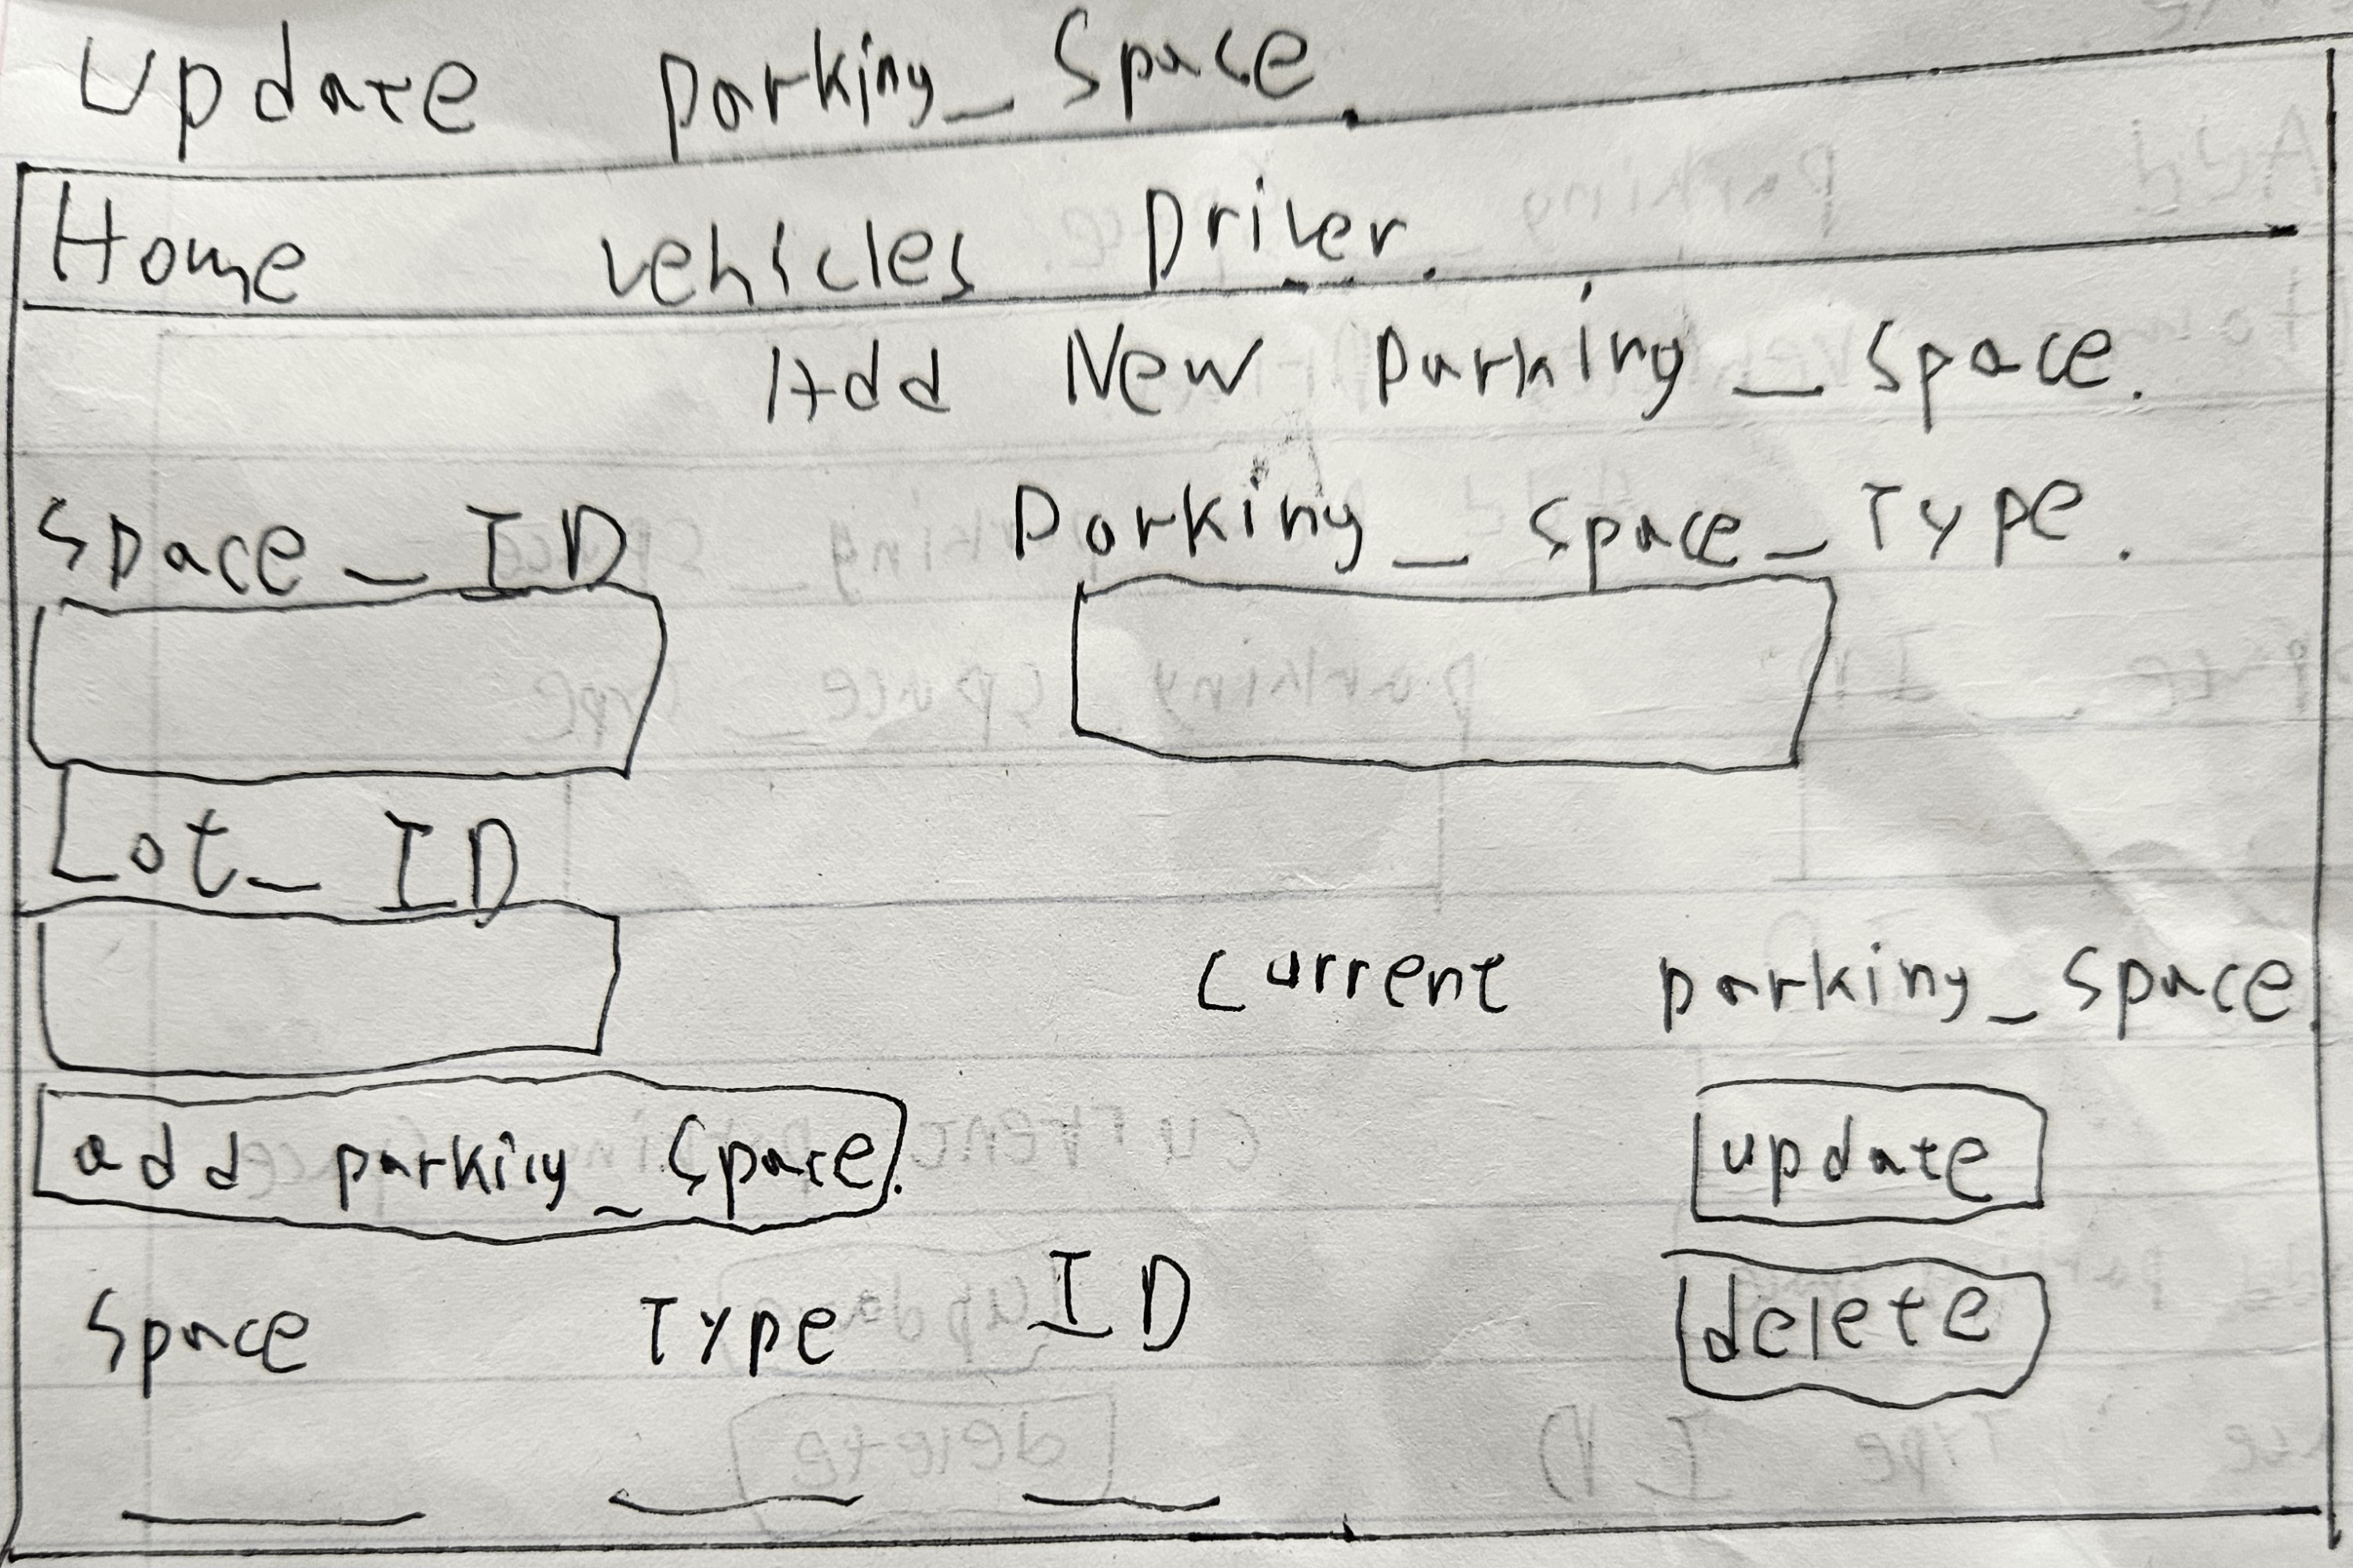 Update parking_space.
Home vehicles Driver.
Add New parking_space.
Space_ID Parking_space_Type.
Lot_ID
current parking_space.
add parking_space.
update
Space Type ID
delete